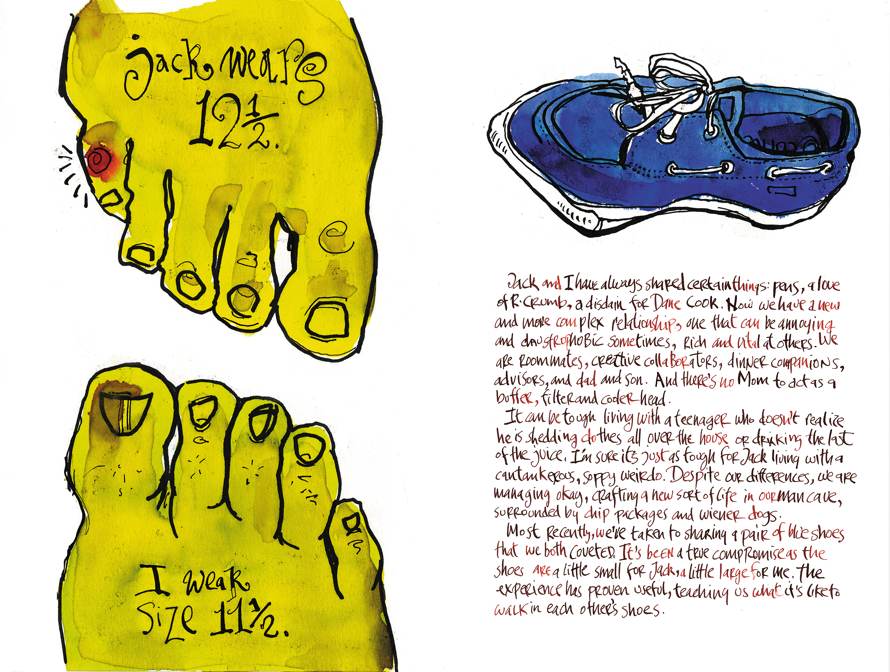 Jack wears
12 1/2.
I wear
Size 11 1/2.
Jack and I have always shared certain things: pens, a love
of R. Crumb, a disdain for Dane Cook. Now we have a new
and more complex relationship, one that can be annoying
and claustrophobic sometimes, rich and vital at others. We
are roommates, creative collaborators, dinner companions,
advisors, and dad and son. And there's no Mom to act as a
buffer, filter and cooler head.
It can be tough living with a teenager who doesn't realize
he is shedding clothes all over the house or drinking the last
of the juice. I'm sure it's just as tough for Jack living with a
cantankerous, soppy weirdo. Despite our differences, we are
managing okay, crafting a new sort of life in our man cave,
surrounded by chip packages and wiener dogs.
Most recently, we've taken to sharing a pair of blue shoes
that we both coveted. It's been a true compromise as the
shoes are a little small for Jack, a little large for me. The
experience has proven useful, teaching us what it's like to
walk in each other's shoes.